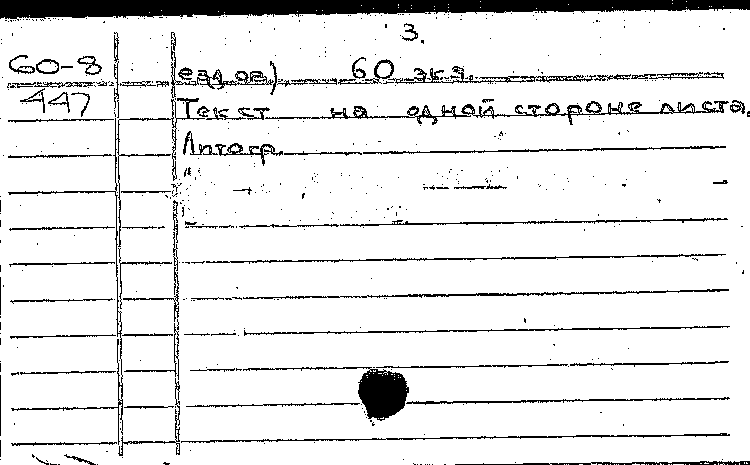 3.
60-8 ездов) 60 экз.
447 Текст на одной стороне листа.
Литогр.